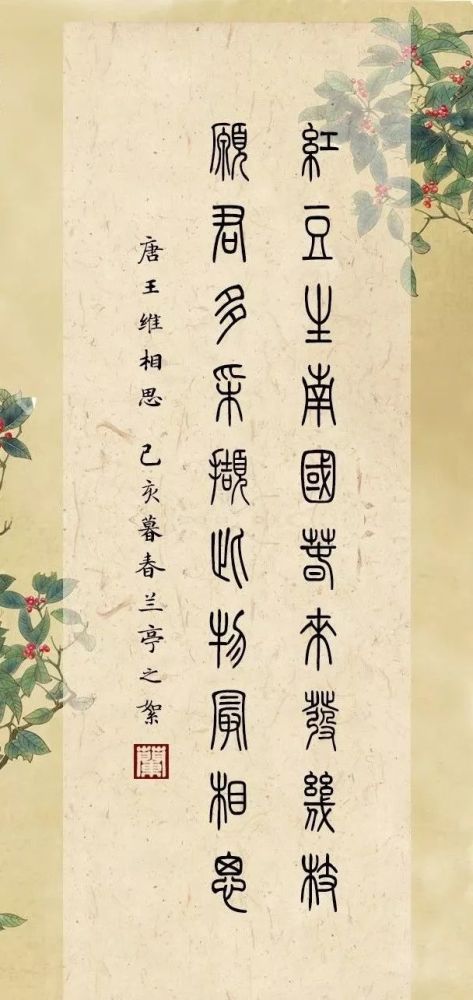 紅豆生南國春來發幾枝
願君多采擷此物最相思
唐王维相思 己亥暮春兰亭之絮
蘭